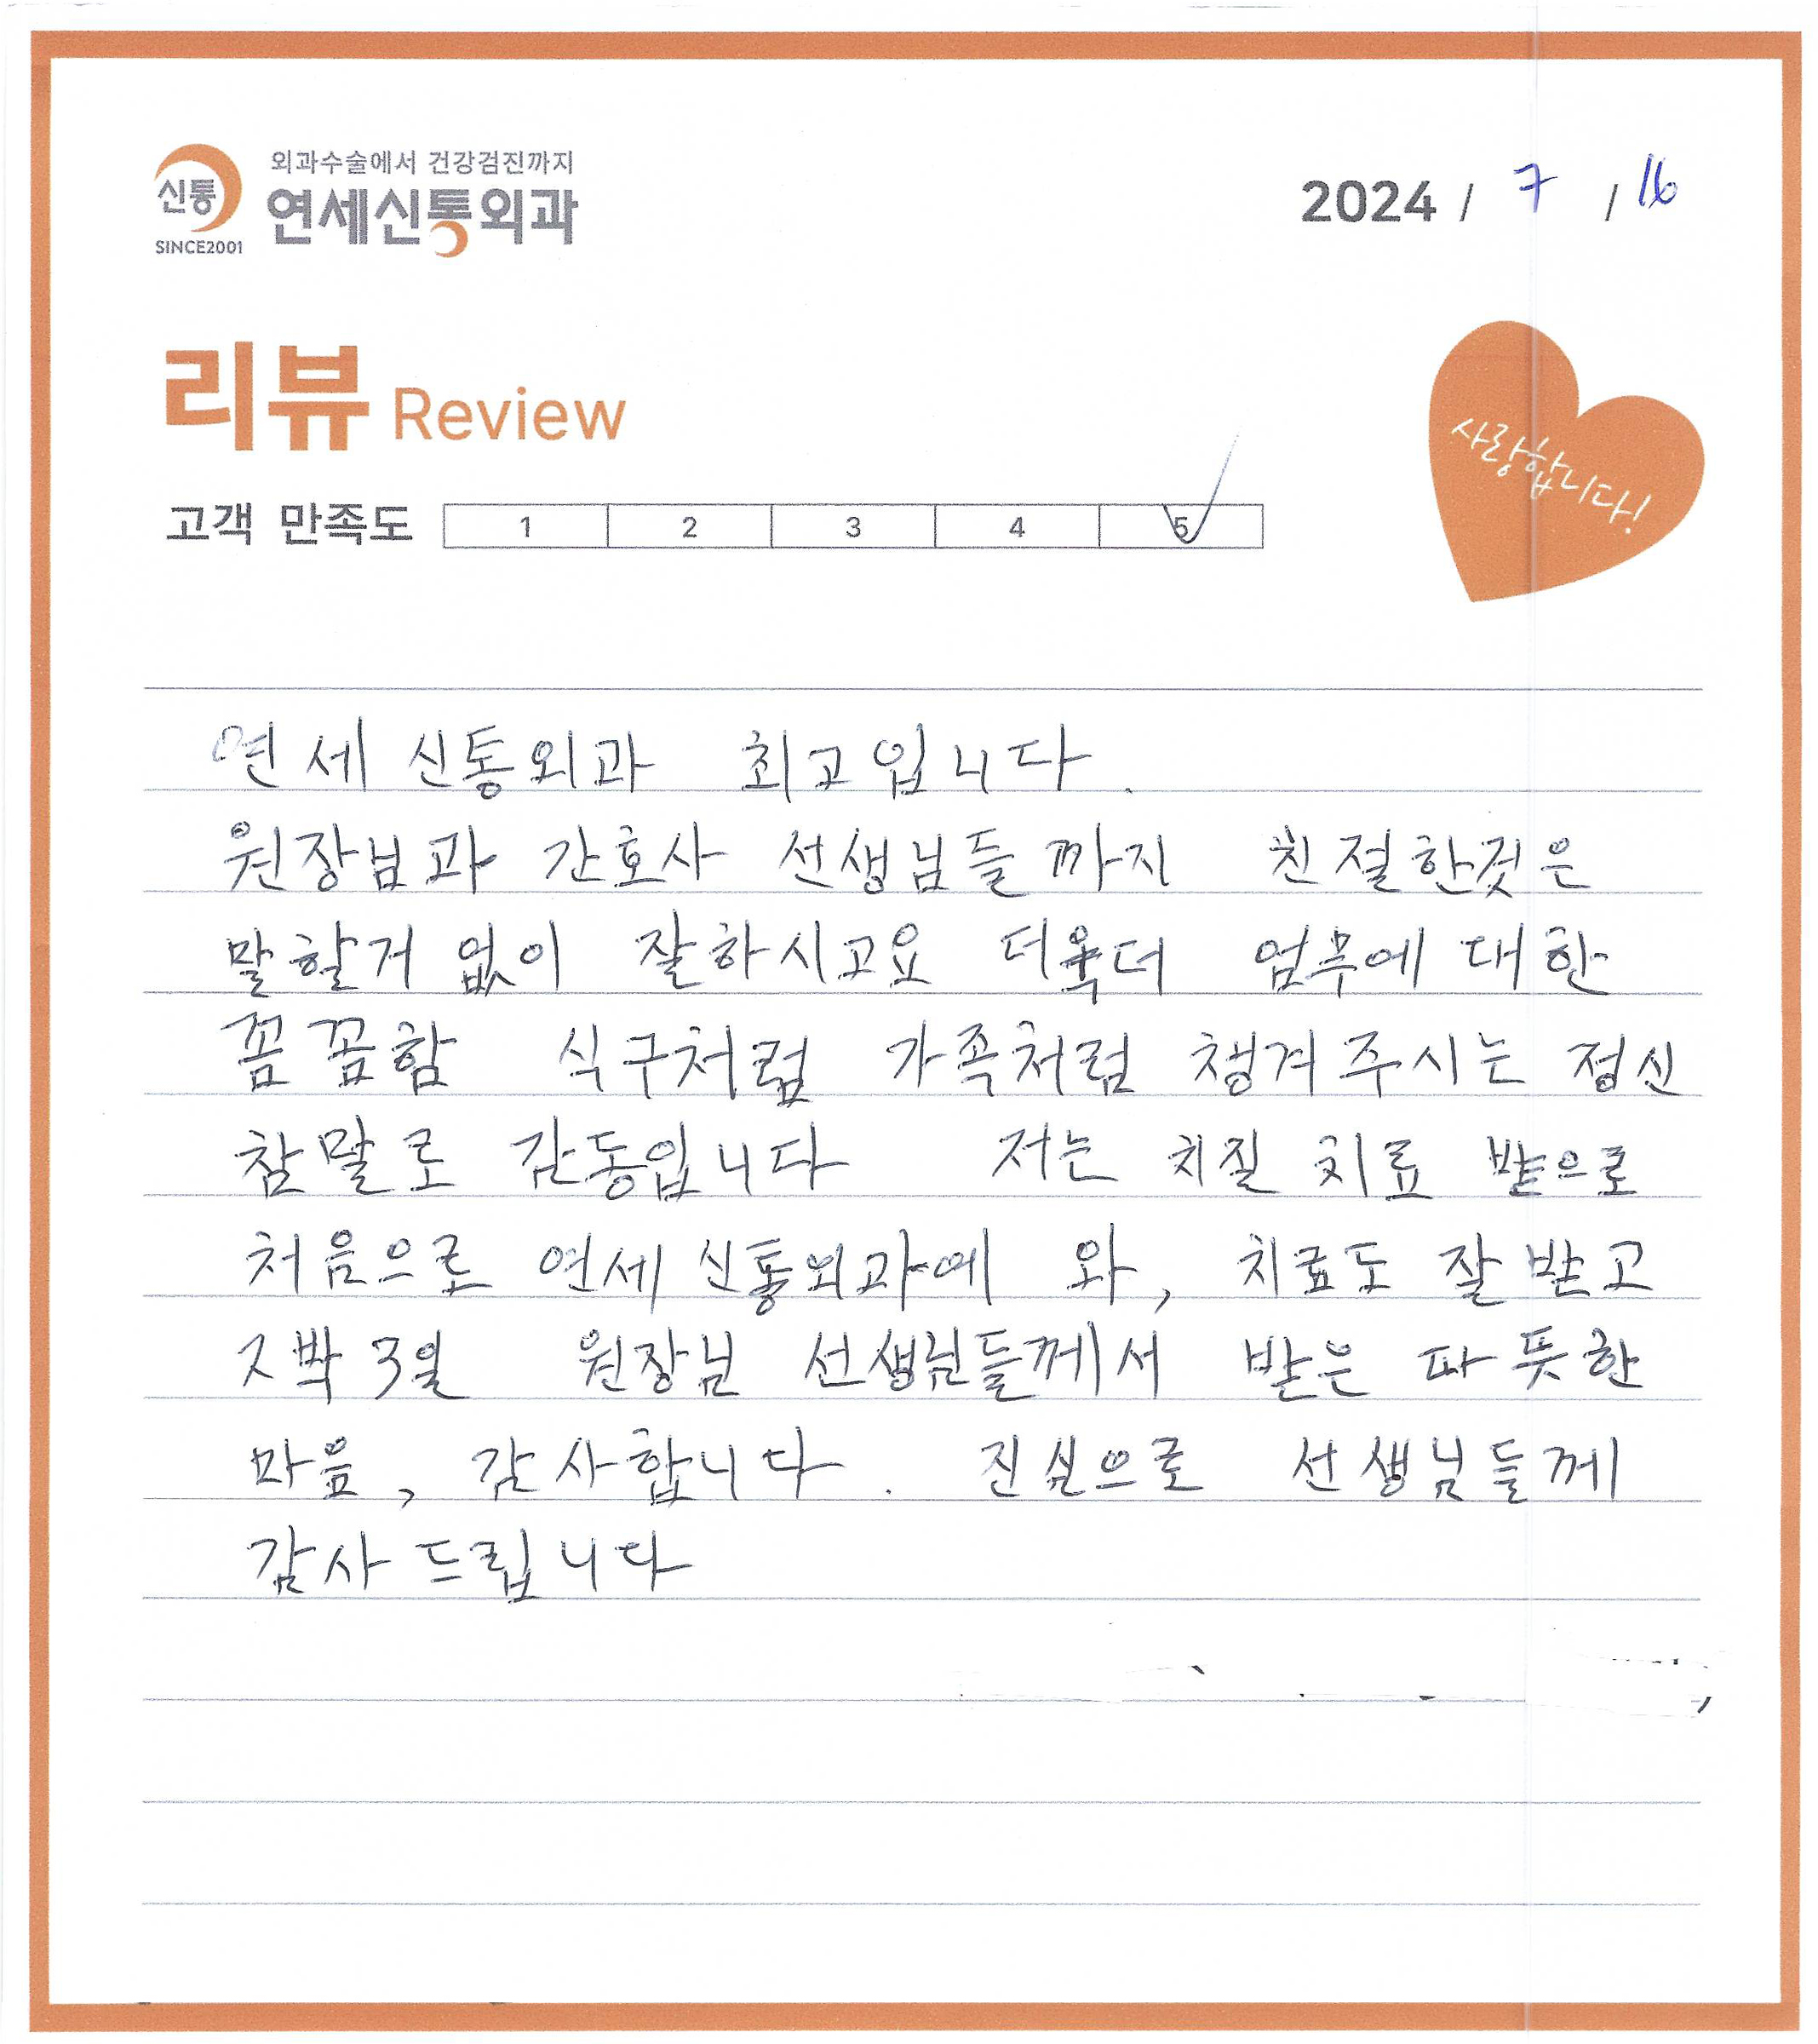 외과수술에서 건강검진까지
신통 연세신통외과
SINCE2001
2024 / 7 / 16
리뷰 Review
사랑합니다!
고객 만족도 1 2 3 4 5
연세 신통외과 최고입니다.
원장님과 간호사 선생님들 까지 친절한것은
말할거 없이 잘하시고요 더욱더 업무에 대한
꼼꼼함 식구처럼 가족처럼 챙겨주시는 정신
참말로 감동입니다 저는 치질 치료 받으로
처음으로 연세 신통외과에 와, 치료도 잘 받고
2박 3일 원장님 선생님들께서 받은 따뜻한
마음, 감사합니다. 진심으로 선생님들께
감사 드립니다